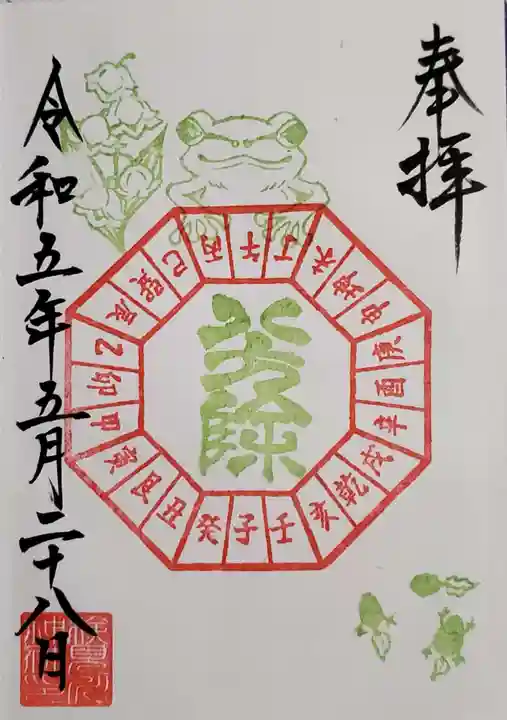 奉拝
八方除
丙
午
丁
未
坤
申
庚
酉
辛
戌
乾
亥
壬
子
癸
丑
艮
寅
甲
卯
乙
辰
巽
巳
令和五年五月二十八日